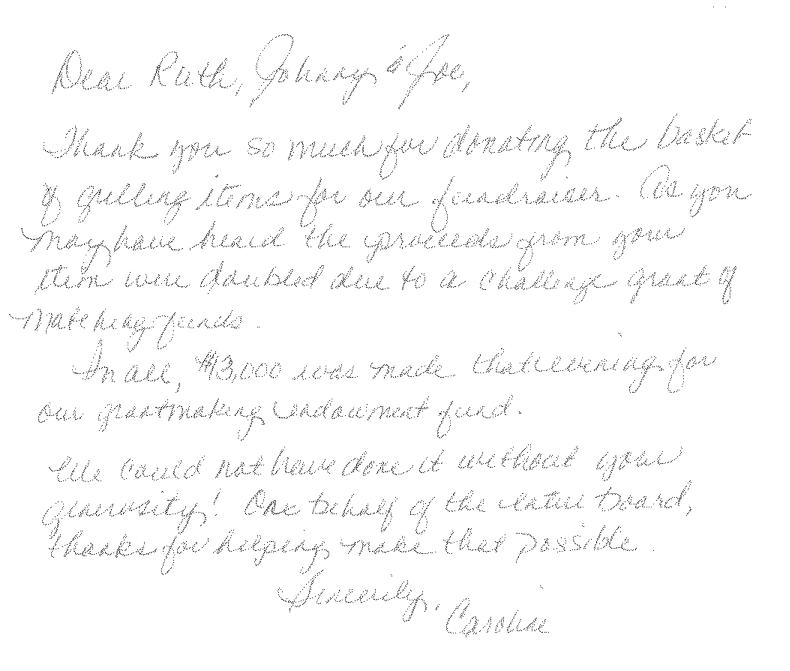 Dear Ruth, Johnny & Joe,
Thank you so much for donating the basket
of grilling items for our fundraiser. As you
may have heard the proceeds from your
item were doubled due to a challenge grant of
matching funds.
In all, $13,000 was made that evening for
our grantmaking endowment fund.
We could not have done it without your
generosity! One behalf of the entire board,
thanks for helping make that possible.
Sincerely,
Caroline